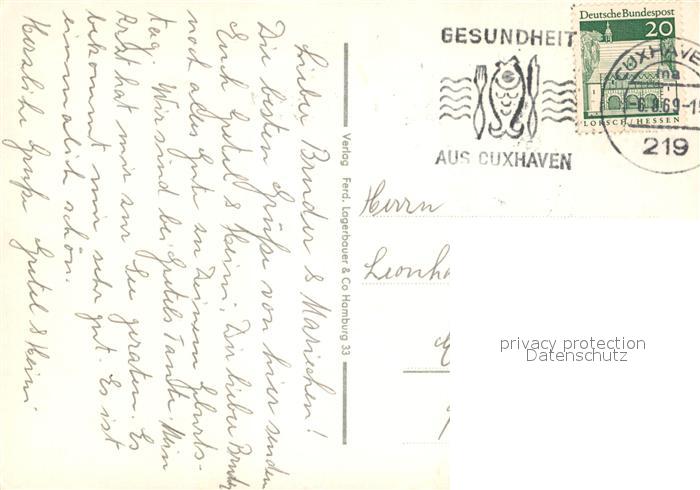 Lieber Bruder & Mariechen!
Die besten Grüße von hier senden
Euch Gretel & Heini. Dir lieber Bruder
noch alles Gute zu Deinem Geburts-
tag. Wir sind bei Gretels Tante. Mein
Arzt hat mir zur See geraten. Es
bekommt mir sehr gut. Es ist
einmalich schön.
Herzliche Grüße Gretel & Heini
Verlag Ferd. Lagerbauer & Co Hamburg 33
GESUNDHEIT
AUS CUXHAVEN
Deutsche Bundespost
20
LORSCH/HESSEN
CUXHAVEN
ma
-6.8.69-1
219
Herrn
Leonha
privacy protection
Datenschutz